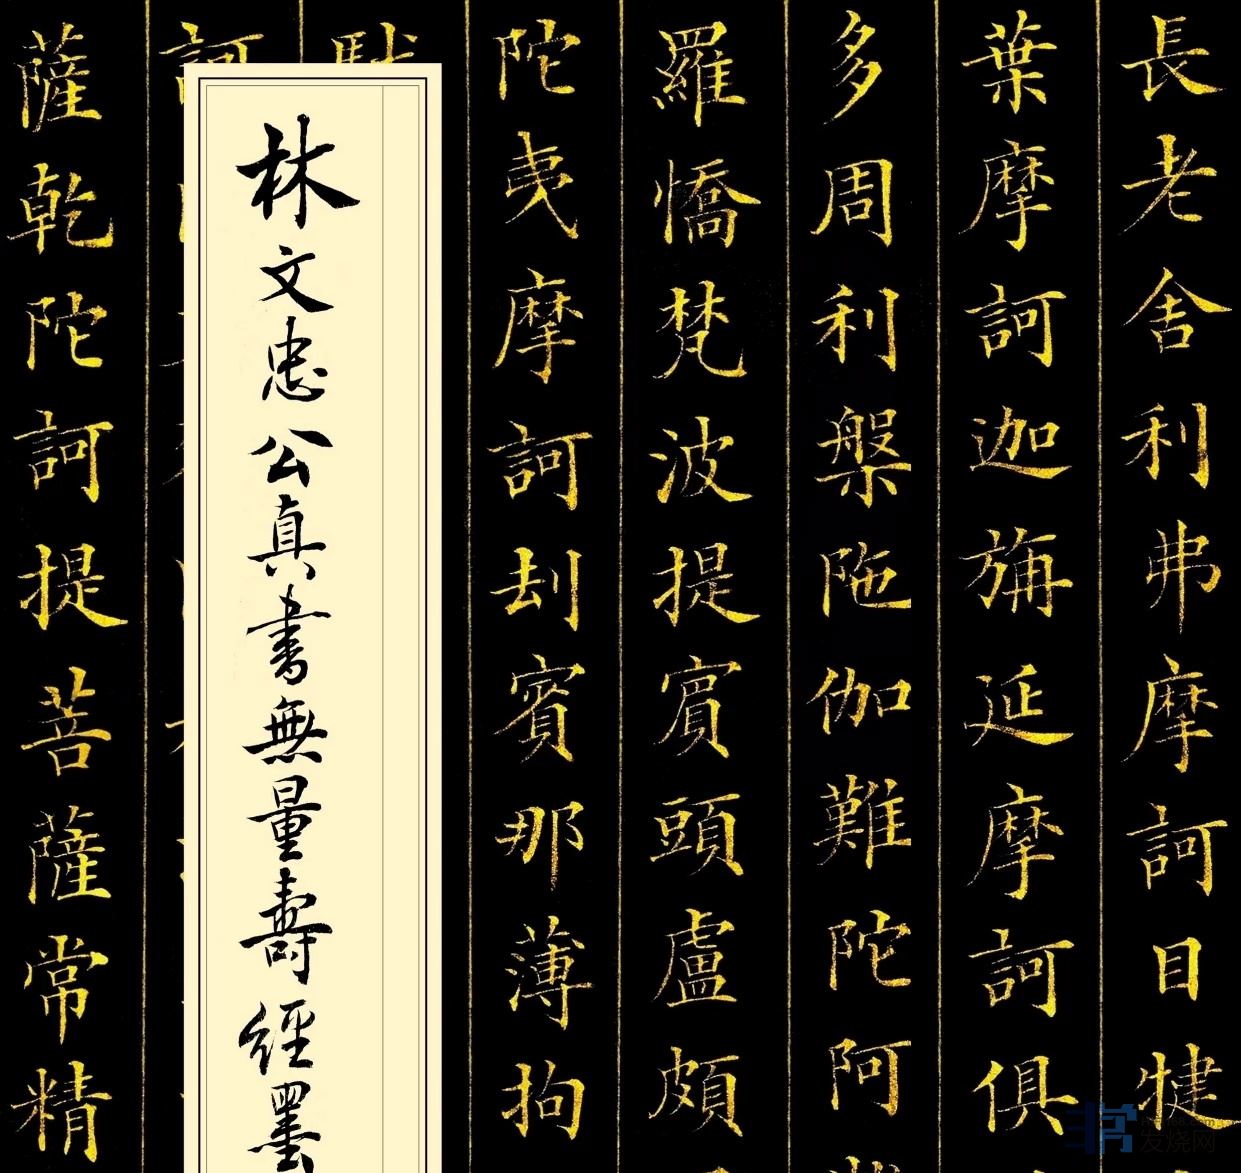 長老舍利弗摩訶目犍
葉摩訶迦旃延摩訶俱
多周利槃陁伽難陀阿
羅憍梵波提賓頭盧頗
陀夷摩訶劫賓那薄拘
林文忠公真書無量壽經墨
訶
薩乾陀訶提菩薩常精
发烧网